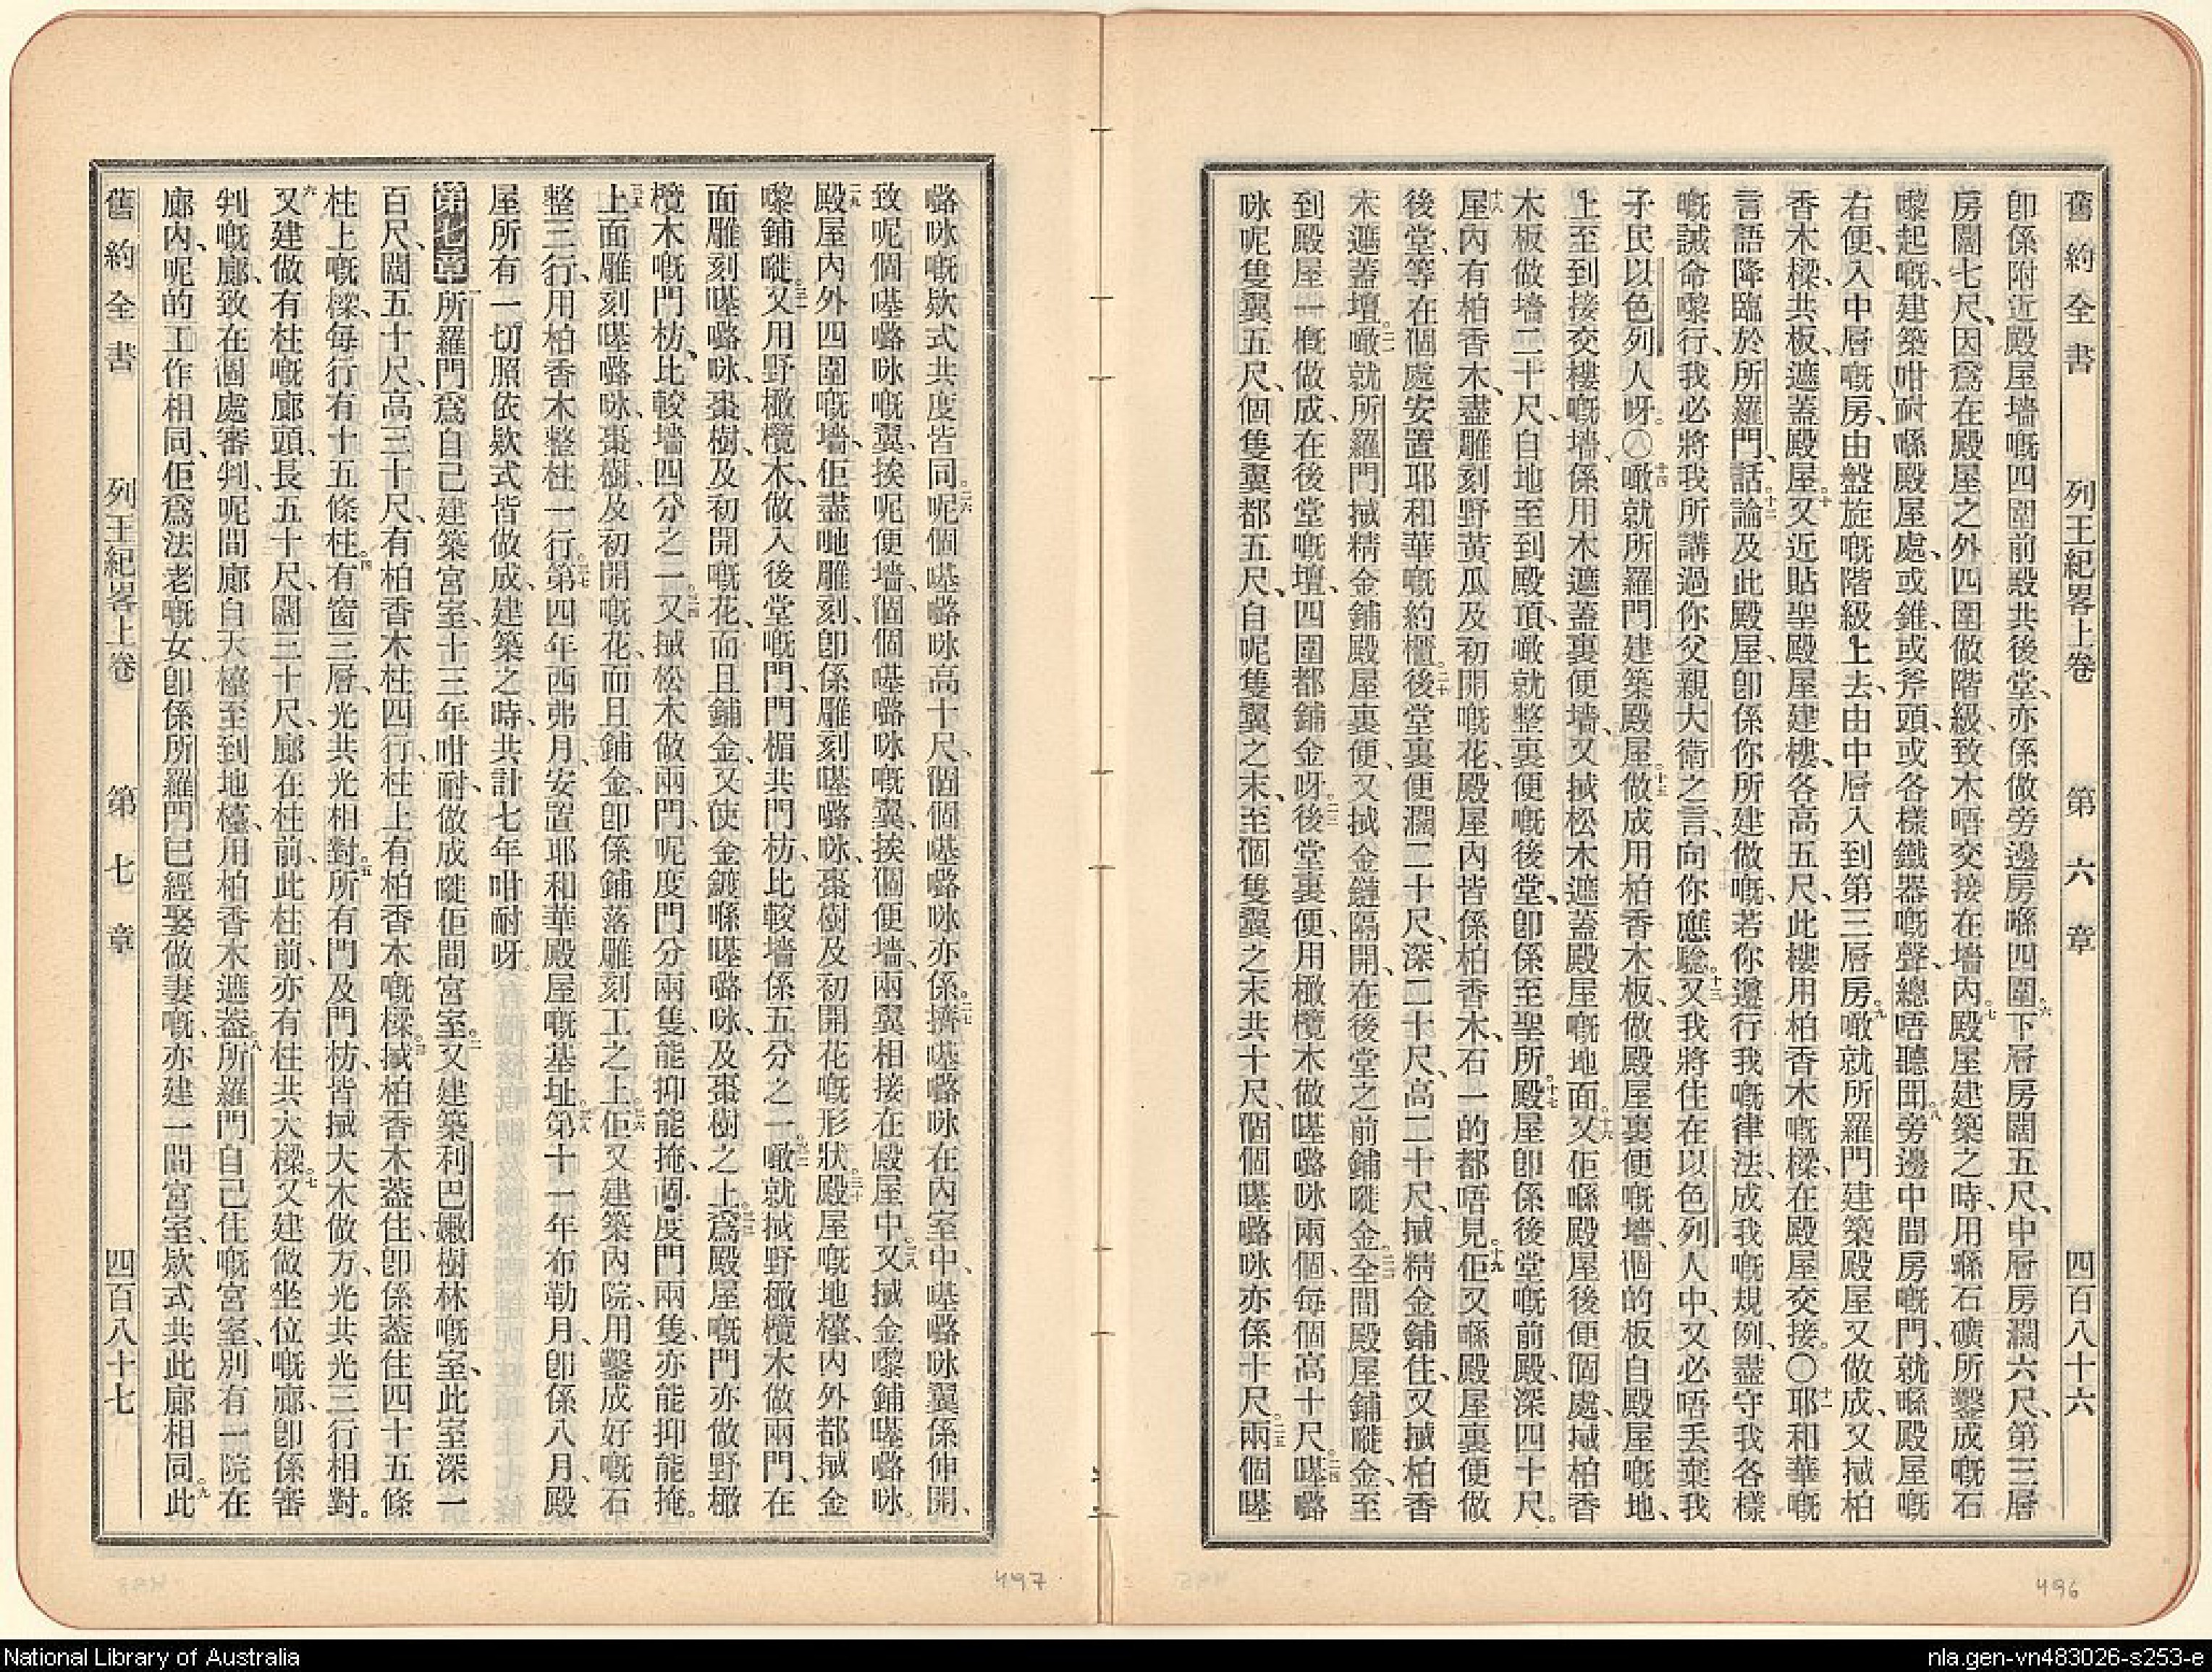 舊約全書 列王紀畧上卷 第六章 四百八十六
卽係附近殿屋墻嘅四圍前殿共後堂、亦係做旁邊房喺四圍。六下層房闊五尺、中層房濶六尺、第三層
房闊七尺、因爲在殿屋之外四圍做階級、致木唔交接在墻內。七殿屋建築之時、用喺石礦所鑿成嘅石
嚟起嘅、建築咁耐喺殿屋處、或錐、或斧頭、或各樣鐵器嘅聲、總唔聽聞。八旁邊中間房嘅門、就喺殿屋嘅
右便、入中層嘅房、由盤旋嘅階級上去、由中層入到第三層房。九噉就所羅門建築殿屋又做成、又搣柏
香木樑、共板、遮蓋殿屋。十又近貼聖殿屋建樓、各高五尺、此樓用柏香木嘅樑、在殿屋交接。〇十一耶和華嘅
言語降臨於所羅門、話。十二論及此殿屋、卽係你所建做嘅、若你遵行我嘅律法、成我嘅規例、盡守我各樣
嘅誡命嚟行、我必將我所講過你父親大衛之言、向你應驗。十三又我將住在以色列人中、又必唔丢棄我
子民以色列人呀。〇十四噉就所羅門建築殿屋。十五做成用柏香木板、做殿屋裏便嘅墻、個的板自殿屋嘅地、
上至到接交樓嘅墻、係用木遮蓋裏便墻、又搣松木遮蓋殿屋嘅地面。十六又佢喺殿屋後便個處、搣柏香
木板做墻二十尺、自地至到殿頂、噉就整裏便嘅後堂、卽係至聖所。十七殿屋卽係後堂嘅前殿、深四十尺。
十八屋內有柏香木、盡雕刻野黃瓜及初開嘅花、殿屋內皆係柏香木、石一的都唔見。十九佢又喺殿屋裏便做
後堂、等在個處安置耶和華嘅約櫃。二十後堂裏便濶二十尺、深二十尺、高二十尺、搣精金鋪住、又搣柏香
木遮蓋壇。二一噉就所羅門搣精金鋪殿屋裏便、又拭金鏈隔開、在後堂之前鋪嘥金。二二全間殿屋鋪嘥金、至
到殿屋一概做成、在後堂嘅壇、四圍都鋪金呀。二三後堂裏便、用橄欖木做㗲嚕咏兩個、每個高十尺。二四㗲嚕
咏呢隻翼五尺、個隻翼都五尺、自呢隻翼之末、至個隻翼之末共十尺、個個㗲嚕咏亦係十尺。二五兩個㗲
嚕咏嘅欵式共度皆同。二六呢個㗲嚕咏高十尺、個個㗲嚕咏亦係。二七擠㗲嚕咏在內室中、㗲嚕咏翼係伸開、
致呢個㗲嚕咏嘅翼、挨呢便墻、個個㗲嚕咏嘅翼、挨個便墻、兩翼相接在殿屋中。二八又搣金嚟鋪㗲嚕咏。
二九殿屋內外四圍嘅墻、佢盡哋雕刻、卽係雕刻㗲嚕咏、棗樹及初開花嘅形狀。三十殿屋嘅地檯、內外都搣金
嚟鋪嘥。三一又用野橄欖木、做入後堂嘅門、門楣共門枋、比較墻係五分之一。三二噉就搣野橄欖木做兩門、在
面雕刻㗲嚕咏、棗樹、及初開嘅花、而且鋪金、又使金鍍喺㗲嚕咏、及棗樹之上。三三爲殿屋嘅門亦做野橄
欖木嘅門枋、比較墻四分之一。三四又搣松木做兩門、呢度門分兩隻、能抑能掩、個度門兩隻、亦能抑能掩。
三五上面雕刻㗲嚕咏、棗樹、及初開嘅花、而且鋪金、卽係鋪落雕刻工之上。三六佢又建築內院、用鑿成好嘅石
整三行、用柏香木整柱一行。三七第四年西弗月、安置耶和華殿屋嘅基址。三八第十一年布勒月、卽係八月、殿
屋所有一切照依欵式皆做成、建築之時、共計七年咁耐呀。
第七章 一所羅門爲自己建築宮室、十三年咁耐、做成嘥佢間宮室。二又建築利巴嫩樹林嘅室、此室深一
百尺、闊五十尺、高三十尺、有柏香木柱四行、柱上有柏香木嘅樑。三搣柏香木蓋住、卽係蓋住四十五條
柱上嘅樑、每行有十五條柱。四有窗三層、光共光相對。五所有門及門枋、皆搣大木做方、光共光三行相對。
六又建做有柱嘅廊頭、長五十尺、闊三十尺、廊在柱前、此柱前、亦有柱共大樑。七又建做坐位嘅廊、卽係審
判嘅廊、致在個處審判、呢間廊自天檯至到地檯、用柏香木遮蓋。八所羅門自己住嘅宮室、別有一院在
廊內、呢的工作相同、佢爲法老嘅女、卽係所羅門已經娶做妻嘅、亦建一間宮室、欵式共此廊相同。九此
舊約全書 列王紀畧上卷 第七章 四百八十七
496
497
National Library of Australia
nla.gen-vn483026-s253-e